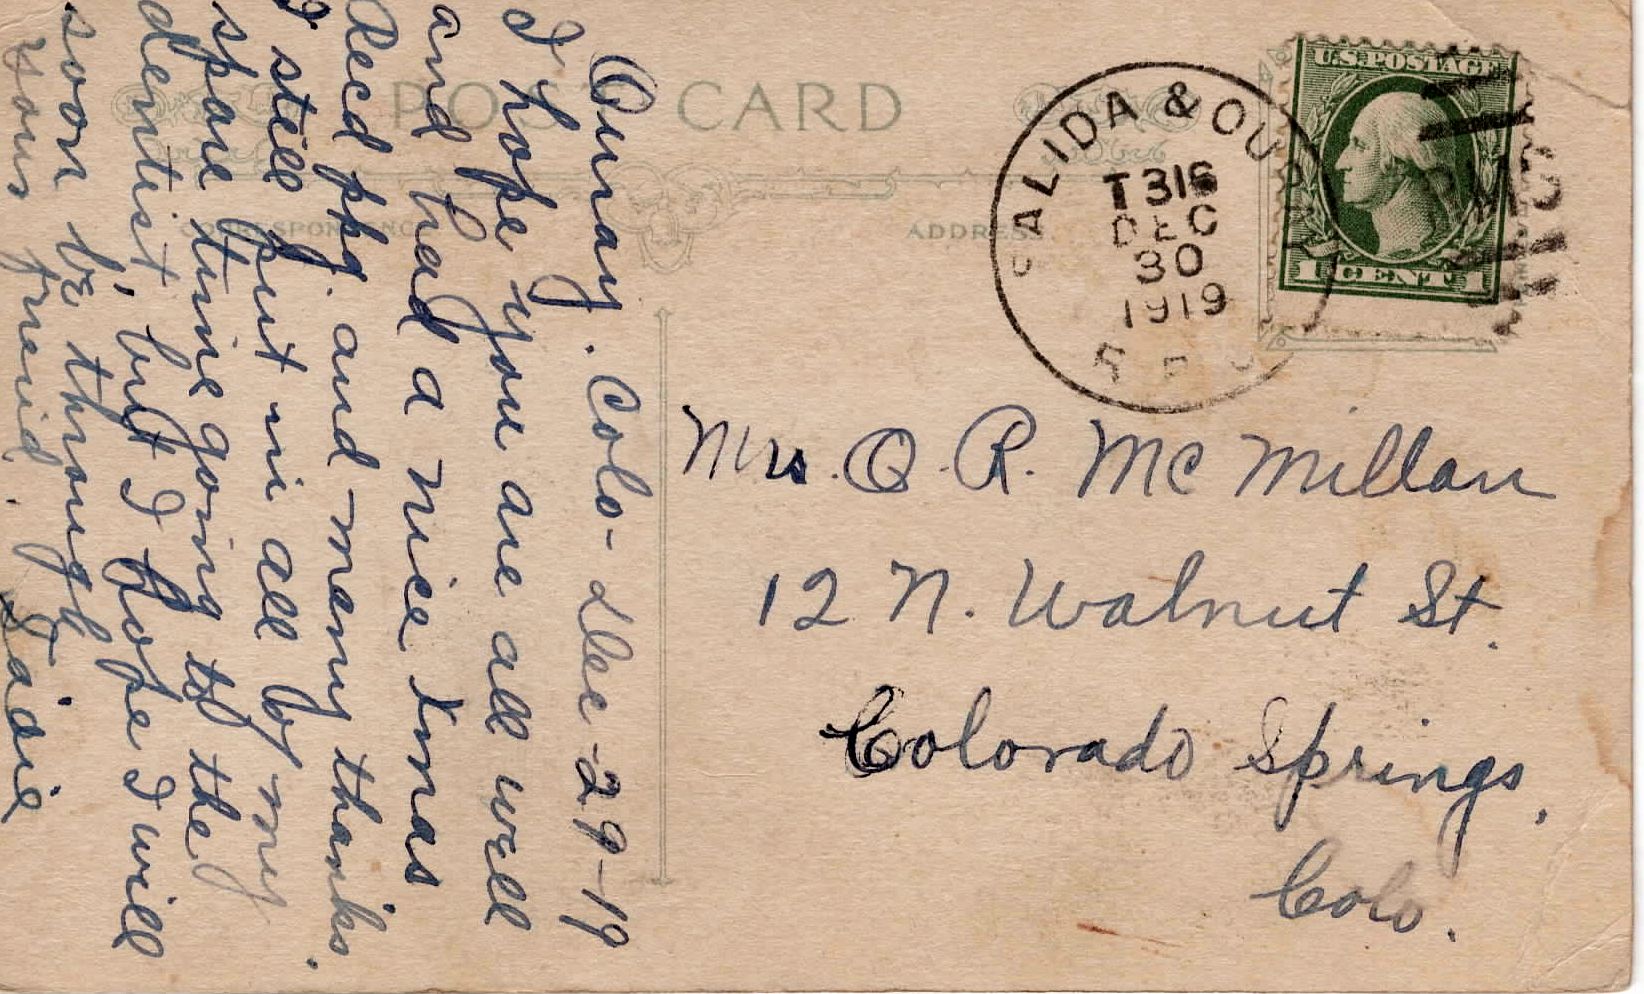 POST CARD
CORRESPONDENCE
ADDRESS
SALIDA & OURAY
T316
DEC
30
1919
R P O
U.S. POSTAGE
1 CENT 1
RMS
Ouray. Colo- Dec-29-19
I hope you are all well
and had a nice Xmas
Recd pkg. and many thanks.
I still put in all of my
spare time going to the
dentist, but I hope I will
soon be through
yours friend.
Sadie
Mrs. O. R. McMillan
12 N. Walnut St.
Colorado Springs,
Colo.